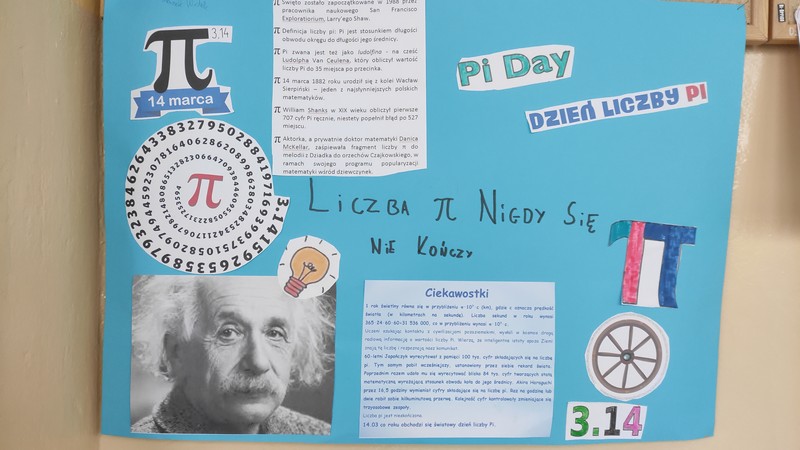 3,14
14 marca
Święto zostało zapoczątkowane w 1988 przez
pracownika naukowego San Francisco
Exploratorium, Larry'ego Shaw.
π Definicja liczby pi: Pi jest stosunkiem długości
obwodu okręgu do długości jego średnicy.
π Pi zwana jest też jako ludolfina - na cześć
Ludolpha Van Ceulena, który obliczył wartość
liczby Pi do 35 miejsca po przecinka.
π 14 marca 1882 roku urodził się z kolei Wacław
Sierpiński – jeden z najsłynniejszych polskich
matematyków.
π William Shanks w XIX wieku obliczył pierwsze
707 cyfr Pi ręcznie, niestety popełnił błąd po 527
miejscu.
π Aktorka, a prywatnie doktor matematyki Danica
McKellar, zaśpiewała fragment liczby π do
melodii z Dziadka do orzechów Czajkowskiego, w
ramach swojego programu popularyzacji
matematyki wśród dziewczynek.
Pi Day
DZIEŃ LICZBY PI
π
LICZBA π NIGDY SIĘ
NIE KOŃCZY
π
Ciekawostki
1 rok świetlny równa się w przybliżeniu
światła (w kilometrach na sekundę). Liczba sekund w roku wynosi
365·24·60·60=31 536 000, co w przybliżeniu wynosi
Uczeni szukając kontaktu z cywilizacjami pozaziemskimi, wysłali w kosmos drogą
radiową informację o wartości liczby Pi. Wierzą, że inteligentne istoty spoza Ziemi
znają tę liczbę i rozpoznają nasz komunikat.
60-letni Japończyk wyrecytował z pamięci 100 tys. cyfr składających się na liczbę
pi. Tym samym pobił wcześniejszy, ustanowiony przez siebie rekord świata.
Poprzednim razem udało mu się wyrecytować blisko 84 tys. cyfr tworzących stałą
matematyczną wyrażającą stosunek obwodu koła do jego średnicy. Akira Haraguchi
przez 16,5 godziny wymieniał cyfry składające się na liczbę pi. Raz na godzinę lub
dwie robił sobie kilkuminutową przerwę. Kolejność cyfr kontrolowały zmieniające się
trzyosobowe zespoły.
Liczba pi jest nieskończona.
14.03 co roku obchodzi się światowy dzień liczby Pi.
3.14